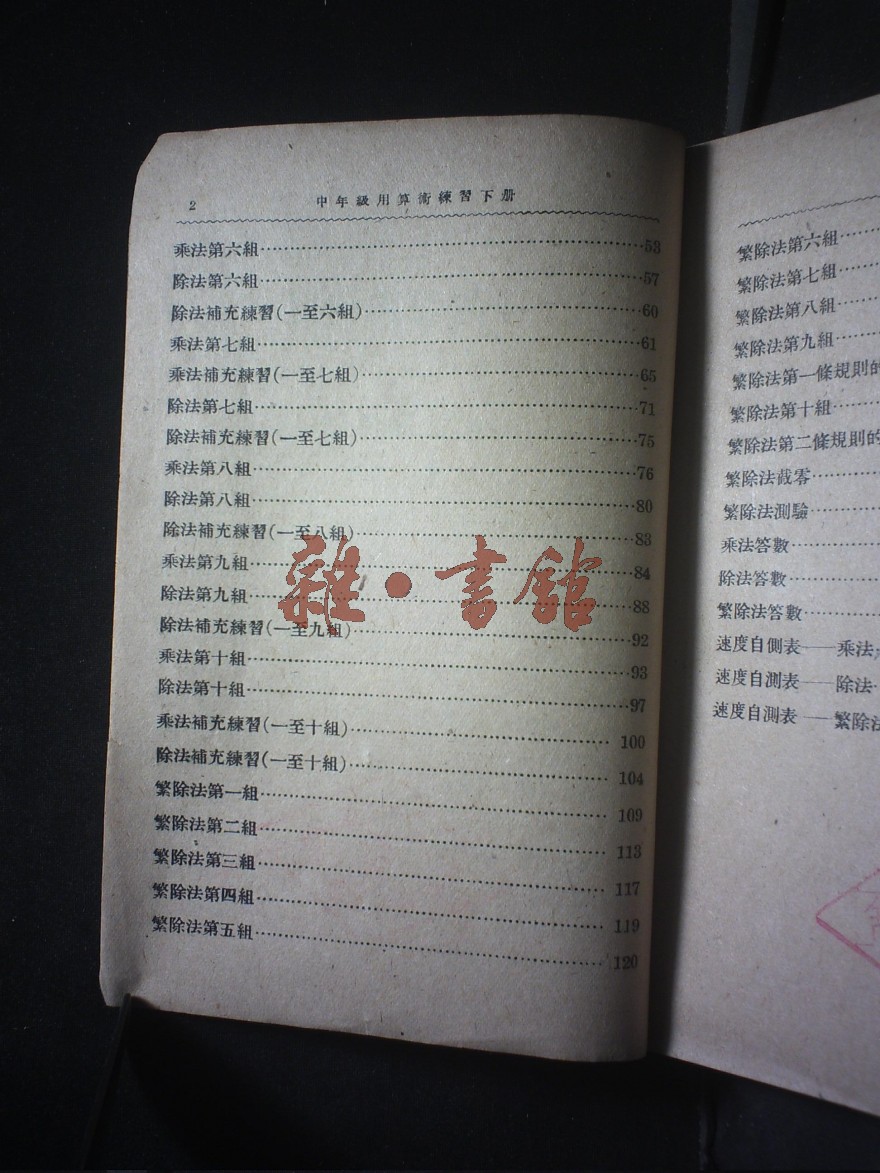 2 中年級用算術練習下册
乘法第六組……53
除法第六組……57
除法補充練習(一至六組)……60
乘法第七組……61
乘法補充練習(一至七組)……65
除法第七組……71
除法補充練習(一至七組)……75
乘法第八組……76
除法第八組……80
除法補充練習(一至八組)……83
乘法第九組……84
除法第九組……88
除法補充練習(一至九組)……92
乘法第十組……93
除法第十組……97
乘法補充練習(一至十組)……100
除法補充練習(一至十組)……104
繁除法第一組……109
繁除法第二組……113
繁除法第三組……117
繁除法第四組……119
繁除法第五組……120
雜·書館
繁除法第六組……
繁除法第七組……
繁除法第八組……
繁除法第九組……
繁除法第一條規則的
繁除法第十組……
繁除法第二條規則的
繁除法截零……
繁除法測驗……
乘法答數……
除法答數……
繁除法答數……
速度自側表——乘法
速度自測表——除法
速度自測表——繁除法